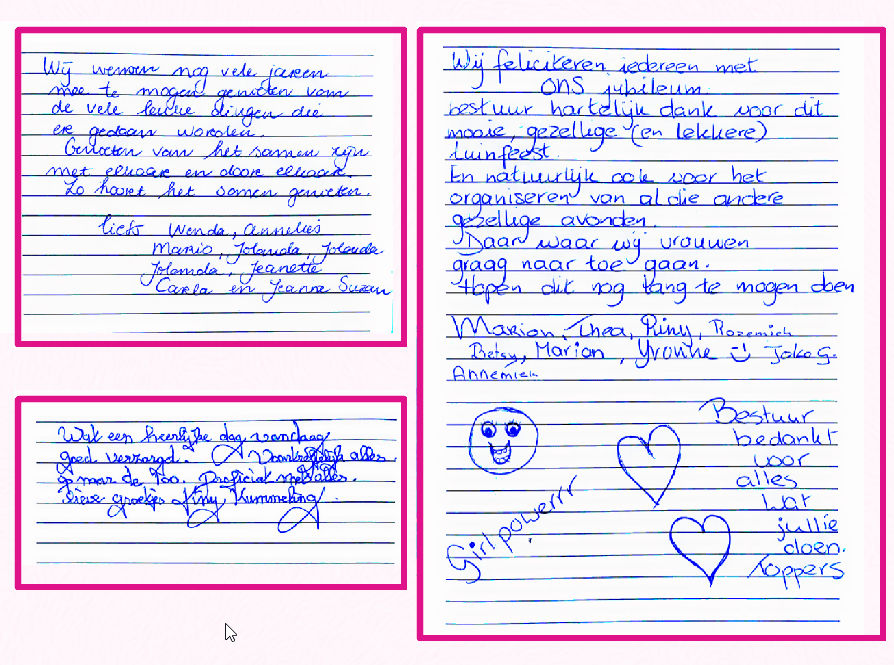 Wij wensen nog vele jaren
mee te mogen genieten van
de vele leuke dingen die
er gedaan worden.
Genieten van het samen zijn
met elkaar en door elkaar.
Zo hoort het samen genieten.
liefs Wenda, Annelies
Mario, Jolanda, Jolanda
Jolanda, Jeanette
Carla en Jeanne Suzan
Wat een heerlijke dag vandaag
goed verzorgd. alles
op naar de 100. Proficiat met alles.
Lieve groetjes Tiny Kummeling.
Wij feliciteren iedereen met
ONS jubileum.
bestuur hartelijk dank voor dit
mooie, gezellige (en lekkere)
tuinfeest.
En natuurlijk ook voor het
organiseren van al die andere
gezellige avonden.
Daar waar wij vrouwen
graag naar toe gaan.
Hopen dit nog lang te mogen doen
Marion, Thea, Riny, Rozemich
Betsy, Marian, Yvonne Joke G.
Annemiek
Bestuur
bedankt
voor
alles
wat
jullie
doen.
Toppers
Girlpowerrr